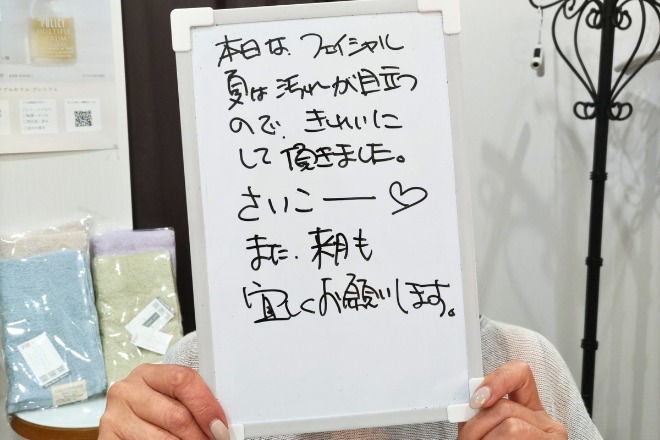 本日は、フェイシャル
夏は汚れが目立つ
ので、きれいに
して頂きました。
さいこー♡
また、来月も
宜しくお願いします。